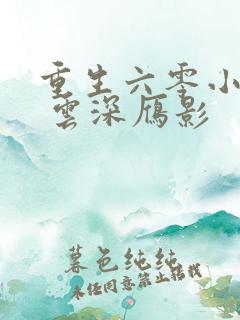 重生六零小
雲深雁影
暮色纯纯
未经同意禁止转载